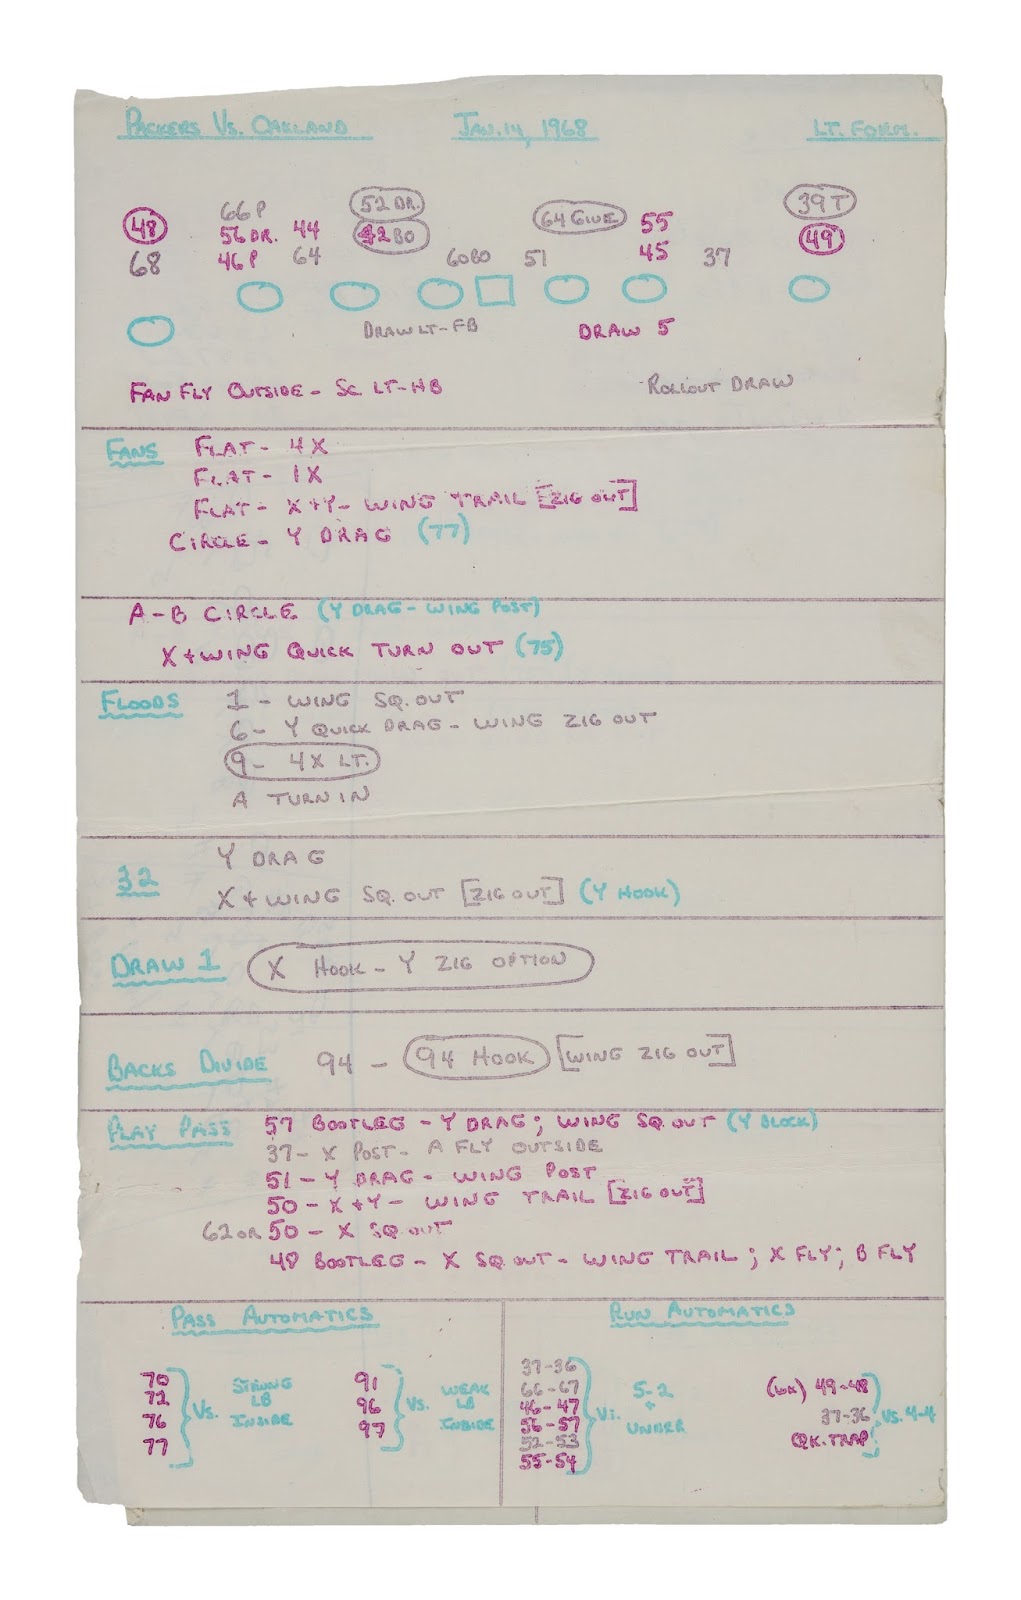 PACKERS VS. OAKLAND JAN. 14, 1968 LT. FORM.
66 P 52 DR. 39 T
48 56 DR. 44 42 BO 64 GIVE 55 49
68 46 P 64 60 BO 51 45 37
DRAW LT-FB DRAW 5
FAN FLY OUTSIDE - SC LT-HB ROLLOUT DRAW
FANS FLAT - 4 X
FLAT - 1 X
FLAT - X+Y - WING TRAIL [ZIG OUT]
CIRCLE - Y DRAG (77)
A-B CIRCLE (Y DRAG - WING POST)
X + WING QUICK TURN OUT (75)
FLOODS 1 - WING SQ. OUT
6 - Y QUICK DRAG - WING ZIG OUT
9 - 4X LT.
A TURN IN
Y DRAG
32 X + WING SQ. OUT [ZIG OUT] (Y HOOK)
DRAW 1 X HOOK - Y ZIG OPTION
BACKS DIVIDE 94 - 94 HOOK [WING ZIG OUT]
PLAY PASS 57 BOOTLEG - Y DRAG; WING SQ. OUT (Y BLOCK)
37 - X POST - A FLY OUTSIDE
51 - Y DRAG - WING POST
50 - X+Y - WING TRAIL [ZIG OUT]
62 OR 50 - X SQ. OUT
48 BOOTLEG - X SQ. OUT - WING TRAIL; X FLY; B FLY
PASS AUTOMATICS
70
72
76
77
VS. STRONG
LB
INSIDE
91
96
97
VS. WEAK
LB
INSIDE
RUN AUTOMATICS
37-36
66-67
46-47
56-57
52-53
55-54
5-2
+
UNDER
49-48
37-36
QK. TRAP
VS. 4-4